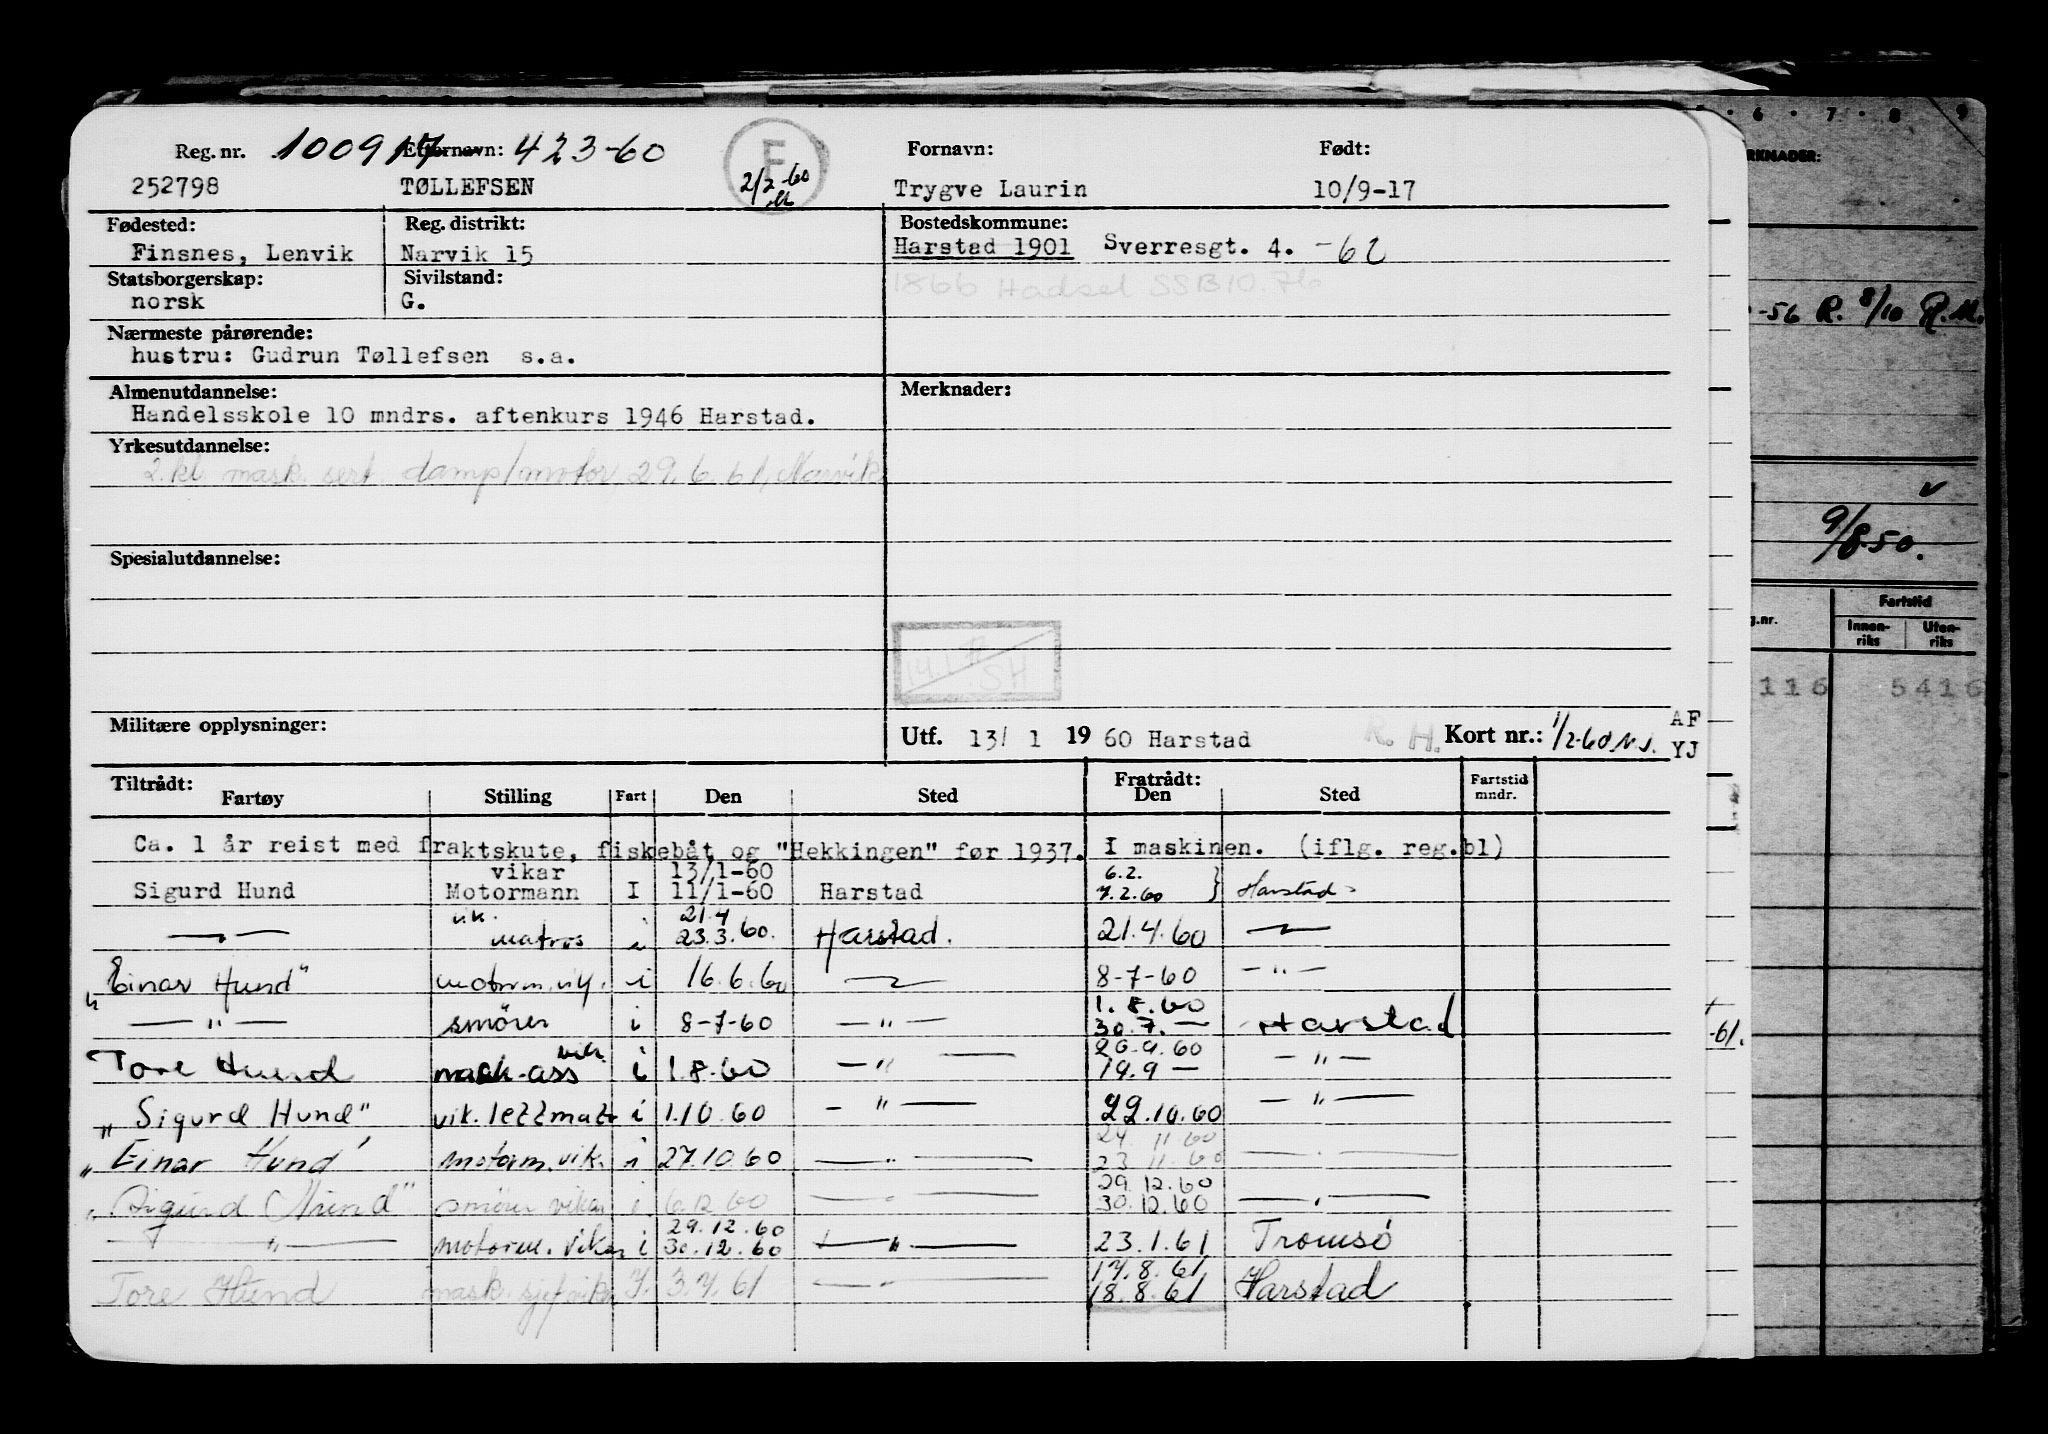 Reg. nr. 100917 Etternavn: 423-60 F Fornavn: Født:
252798 TØLLEFSEN 2/2-60 Trygve Laurin 10/9-17
Fødested: Reg. distrikt: Bostedskommune:
Finsnes, Lenvik Narvik 15 Harstad 1901 Sverresgt. 4. -62
Statsborgerskap: Sivilstand: 1866 Hadsel SSB10.76
norsk G.
Nærmeste pårørende:
hustru: Gudrun Tøllefsen s.a.
Almenutdannelse: Merknader:
Handelsskole 10 mndrs. aftenkurs 1946 Harstad.
Yrkesutdannelse:
2. kl mask. sert. damp/motor 29.6.61, Narvik
Spesialutdannelse:
SH
Militære opplysninger:
Utf. 13/ 1 19 60 Harstad R.H. Kort nr.: 1/2-60 N.J. AF
YJ
Tiltrådt: Fratrådt:
Fartøy Stilling Fart Den Sted Den Sted Fartstid mndr.
Ca. 1 år reist med fraktskute, fiskebåt og "Hekkingen" før 1937. I maskinen. (iflg. reg.bl)
vikar 13/1-60 6.2.
Sigurd Hund Motormann I 11/1-60 Harstad 7.2.60 } Harstad
vik. 21.4
— " — matros i 23.3.60. Harstad. 21.4.60 — " —
"Einar Hund" motorm. vik. i 16.6.60 — " — 8-7-60 — " —
1.8.60
— " — smörer i 8-7-60 — " — 30.7. — Harstad
vik. 20.9.60
Tore Hund mask-ass i 1.8.60 — " — 19.9 — — " —
"Sigurd Hund" vik. lettmatr i 1.10.60 — " — 22.10.60 — " —
24.11.60
"Einar Hund" motorm. vik. i 27.10.60 — " — 23.11.60 — " —
29.12.60
"Sigurd Hund" smörer vikar i 6.12.60 — " — 30.12.60 — " —
29.12.60
— " — motorm. vikar i 30.12.60 — " — 23.1.61 Tromsö
17.8.61
Tore Hund mask. sjef vikar I. 3.7.61 — " — 18.8.61 Harstad
6 · 7 · 8 · 9
RKNADER:
-56 R. 8/10 R.M.
9/8.50.
g.nr. Fartstid
Innen-riks Uten-riks
116 5416
-61.